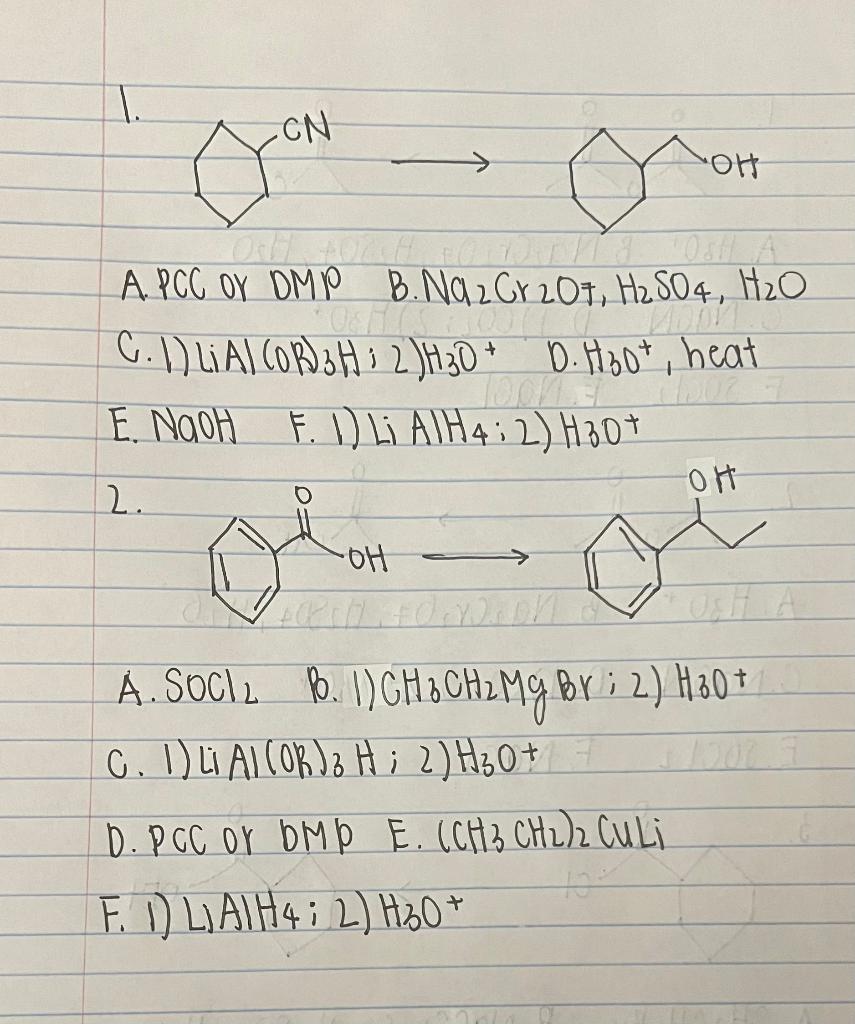 1.
CN
OH
A. PCC or DMP B. Na2Cr2O7, H2SO4, H2O
C. 1) LiAl(OR)3H; 2) H3O+ D. H3O+, heat
E. NaOH F. 1) LiAlH4; 2) H3O+
2.
O
OH
OH
A. SOCl2 B. 1) CH3CH2MgBr; 2) H3O+
C. 1) LiAl(OR)3H; 2) H3O+
D. PCC or DMP E. (CH3CH2)2CuLi
F. 1) LiAlH4; 2) H3O+